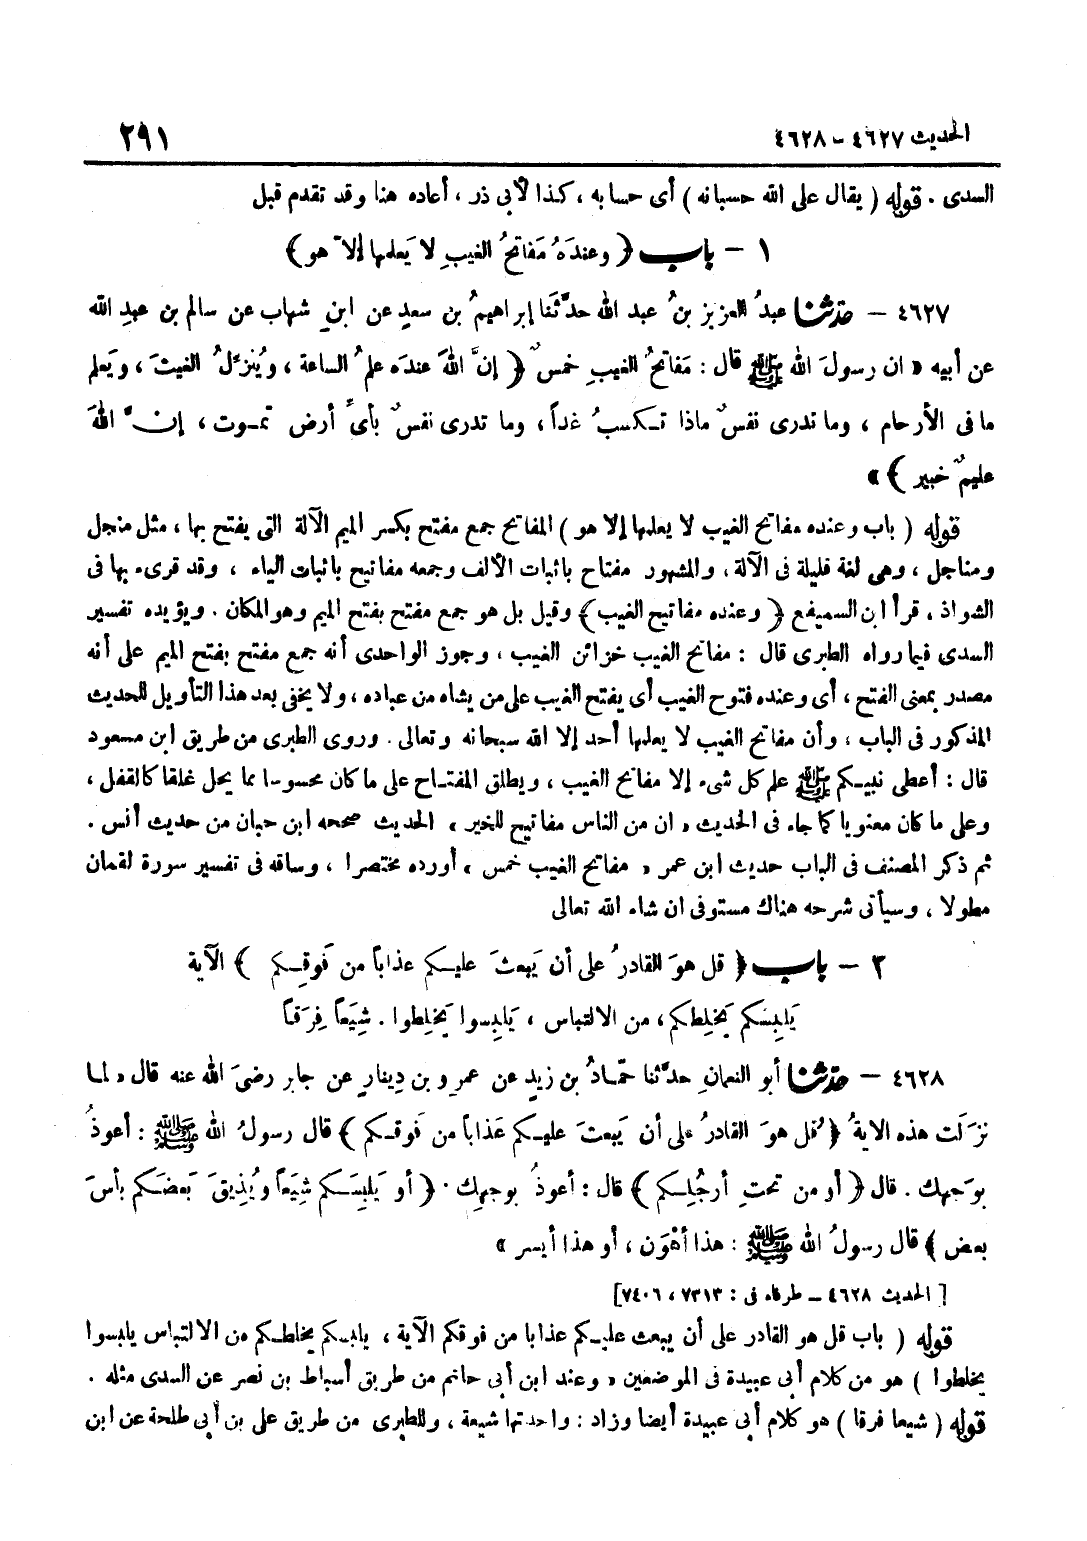 الحديث ٤٦٢٧ - ٤٦٢٨
٢٩١
السدى . قوله ( يقال على الله حسبانه ) أى حسابه ، كذا لأبى ذر ، أعاده هنا وقد تقدم قبل
١ - باب ﴿ وعندَهُ مَفاتحُ الغيبِ لا يَعلمها إلاّ هو ﴾
٤٦٢٧ - حدّثنا عبدُ العزيز بنُ عبد الله حدَّثَنا إبراهيمُ بن سعدٍ عن ابنِ شهاب عن سالم بن عبدِ الله
عن أبيه « ان رسولَ الله ﷺ قال : مَفاتحُ الغيبِ خمسٌ ﴿ إنَّ اللّٰهَ عندَه علمُ الساعة ، ويُنزلُ الغيثَ ، ويَعلم
ما فى الأرحام ، وما تدرى نفسٌ ماذا تكسبُ غداً ، وما تدرى نفسٌ بأىِّ أرض تموت ، إنَّ اللّٰهَ
عليمٌ خبير ﴾ »
قوله ( باب وعنده مفاتح الغيب لا يعلمها إلا هو ) المفاتح جمع مفتح بكسر الميم الآلة التى يفتح بها ، مثل منجل
ومناجل ، وهى لغة قليلة فى الآلة ، والمشهور مفتاح باثبات الألف وجمعه مفاتيح باثبات الياء ، وقد قرىء بها فى
الشواذ ، قرأ ابن السميفع ﴿ وعنده مفاتيح الغيب ﴾ وقيل بل هو جمع مفتح بفتح الميم وهو المكان . ويؤيده تفسير
السدى فيما رواه الطبرى قال : مفاتح الغيب خزائن الغيب ، وجوز الواحدى أنه جمع مفتح بفتح الميم على أنه
مصدر بمعنى الفتح ، أى وعنده فتوح الغيب أى يفتح الغيب على من يشاء من عباده ، ولا يخفى بعد هذا التأويل للحديث
المذكور فى الباب ، وأن مفاتح الغيب لا يعلمها أحد إلا الله سبحانه وتعالى . وروى الطبرى من طريق ابن مسعود
قال : أعطى نبيكم ﷺ علم كل شىء إلا مفاتح الغيب ، ويطلق المفتاح على ما كان محسوسا مما يحل غلقا كالقفل ،
وعلى ما كان معنويا كما جاء فى الحديث « ان من الناس مفاتيح للخير » الحديث صححه ابن حبان من حديث أنس .
ثم ذكر المصنف فى الباب حديث ابن عمر « مفاتح الغيب خمس » أورده مختصرا ، وساقه فى تفسير سورة لقمان
مطولا ، وسيأتى شرحه هناك مستوفى ان شاء الله تعالى
٢ - باب ﴿ قل هوَ القادرُ على أن يَبعثَ عليكم عذاباً من فَوقِكم ﴾ الآية
يَلبِسَكم يَخلِطكم ، من الالتباس ، يَلبِسوا يَخلِطوا . شِيَعاً فِرَقاً
٤٦٢٨ - حدّثنا أبو النعمانِ حدَّثنا حمّادُ بن زيدٍ عن عمرِو بن دِينارٍ عن جابر رضىَ الله عنه قال « لما
نزَلَت هذه الآيةُ ﴿ قُل هوَ القادرُ على أن يَبعثَ عليكم عَذاباً من فَوقكم ﴾ قال رسولُ الله ﷺ : أعوذُ
بوَجهك . قال ﴿ أو من تحتِ أرجُلِكم ﴾ قال : أعوذُ بوجهِك . ﴿ أو يَلبِسَكم شِيَعاً ويُذيقَ بَعضَكم بأسَ
بعض ﴾ قال رسولُ الله ﷺ : هذا أهْوَن ، أو هذا أيسر »
[ الحديث ٤٦٢٨ - طرفاه فى : ٧٣١٣ ، ٧٤٠٦]
قوله ( باب قل هو القادر على أن يبعث عليكم عذابا من فوقكم الآية ، يلبسكم يخلطكم من الالتباس يلبسوا
يخلطوا ) هو من كلام أبى عبيدة فى الموضعين ، وعند ابن أبى حاتم من طريق أسباط بن نصر عن السدى مثله .
قوله ( شيعا فرقا ) هو كلام أبى عبيدة أيضا وزاد : واحدتها شيعة ، وللطبرى من طريق على بن أبى طلحة عن ابن